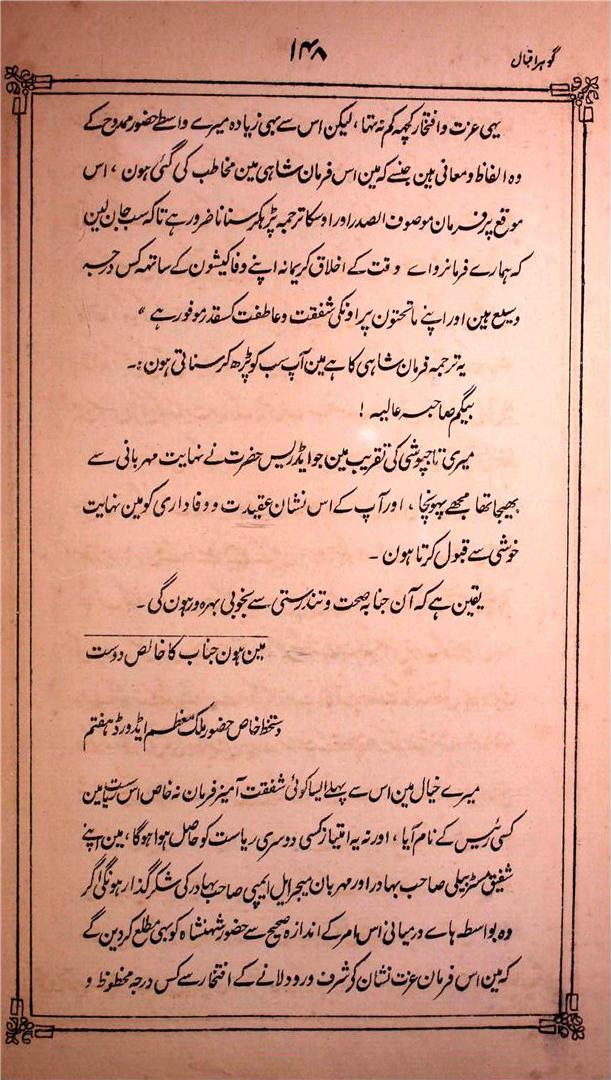 گوہر اقبال
۱۴۸
یہی عزت و افتخار کچھہ کم نہ تہا، لیکن اس سے بہی زیادہ میرے واسطے حضور ممدوح کے
وہ الفاظ و معانی ہین جنسے کہ مین اس فرمان شاہی مین مخاطب کی گئی ہون، اس
موقع پر فرمان موصوف الصدر اور اوسکا ترجمہ پڑہکر سنانا ضرور ہے تاکہ سب جان لین
کہ ہمارے فرمانرواے وقت کے اخلاق کریمانہ اپنے وفاکیشون کے ساتھہ کس درجہ
وسیع ہین اور اپنے ماتحتون پر اونکی شفقت و عاطفت کسقدر موفور ہے "
یہ ترجمہ فرمان شاہی کا ہے مین آپ سب کو پڑھ کر سناتی ہون :۔
بیگم صاحبہ عالیہ !
میری تاجپوشی کی تقریب مین جو ایڈریس حضرت نے نہایت مہربانی سے
بھیجا تھا مجھے پہونچا، اور آپ کے اس نشان عقیدت و وفاداری کو مین نہایت
خوشی سے قبول کرتا ہون ۔
یقین ہے کہ آن جنابہ صحت و تندرستی سے بخوبی بہرہ ور ہون گی ۔
مین ہون جناب کا خالص دوست
دستخط خاص حضور ملک معظم ایڈورڈ ہفتم
میرے خیال مین اس سے پہلے ایسا کوئی شفقت آمیز فرمان نہ خاص اس ریاست مین
کسی رئیس کے نام آیا، اور نہ یہ امتیاز کسی دوسری ریاست کو حاصل ہوا ہوگا، مین اپنے
شفیق مسٹر بیلی صاحب بہادر اور مہربان میجر ایل ایمپی صاحب بہادر کی شکر گذار ہونگی اگر
وہ بواسطہ ہاے درمیانی اس امر کے اندازہ صحیح سے حضور شہنشاہ کو بہی مطلع کر دین گے
کہ مین اس فرمان عزت نشان کو شرف ورود لانے کے افتخار سے کس درجہ محظوظ و